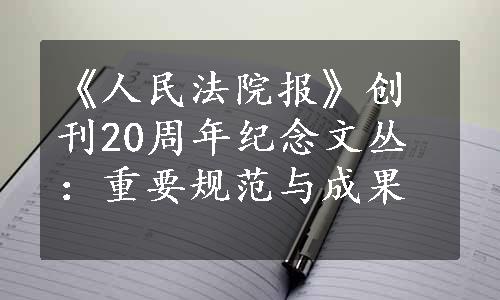 《人民法院报》创
刊20周年纪念文丛
：重要规范与成果